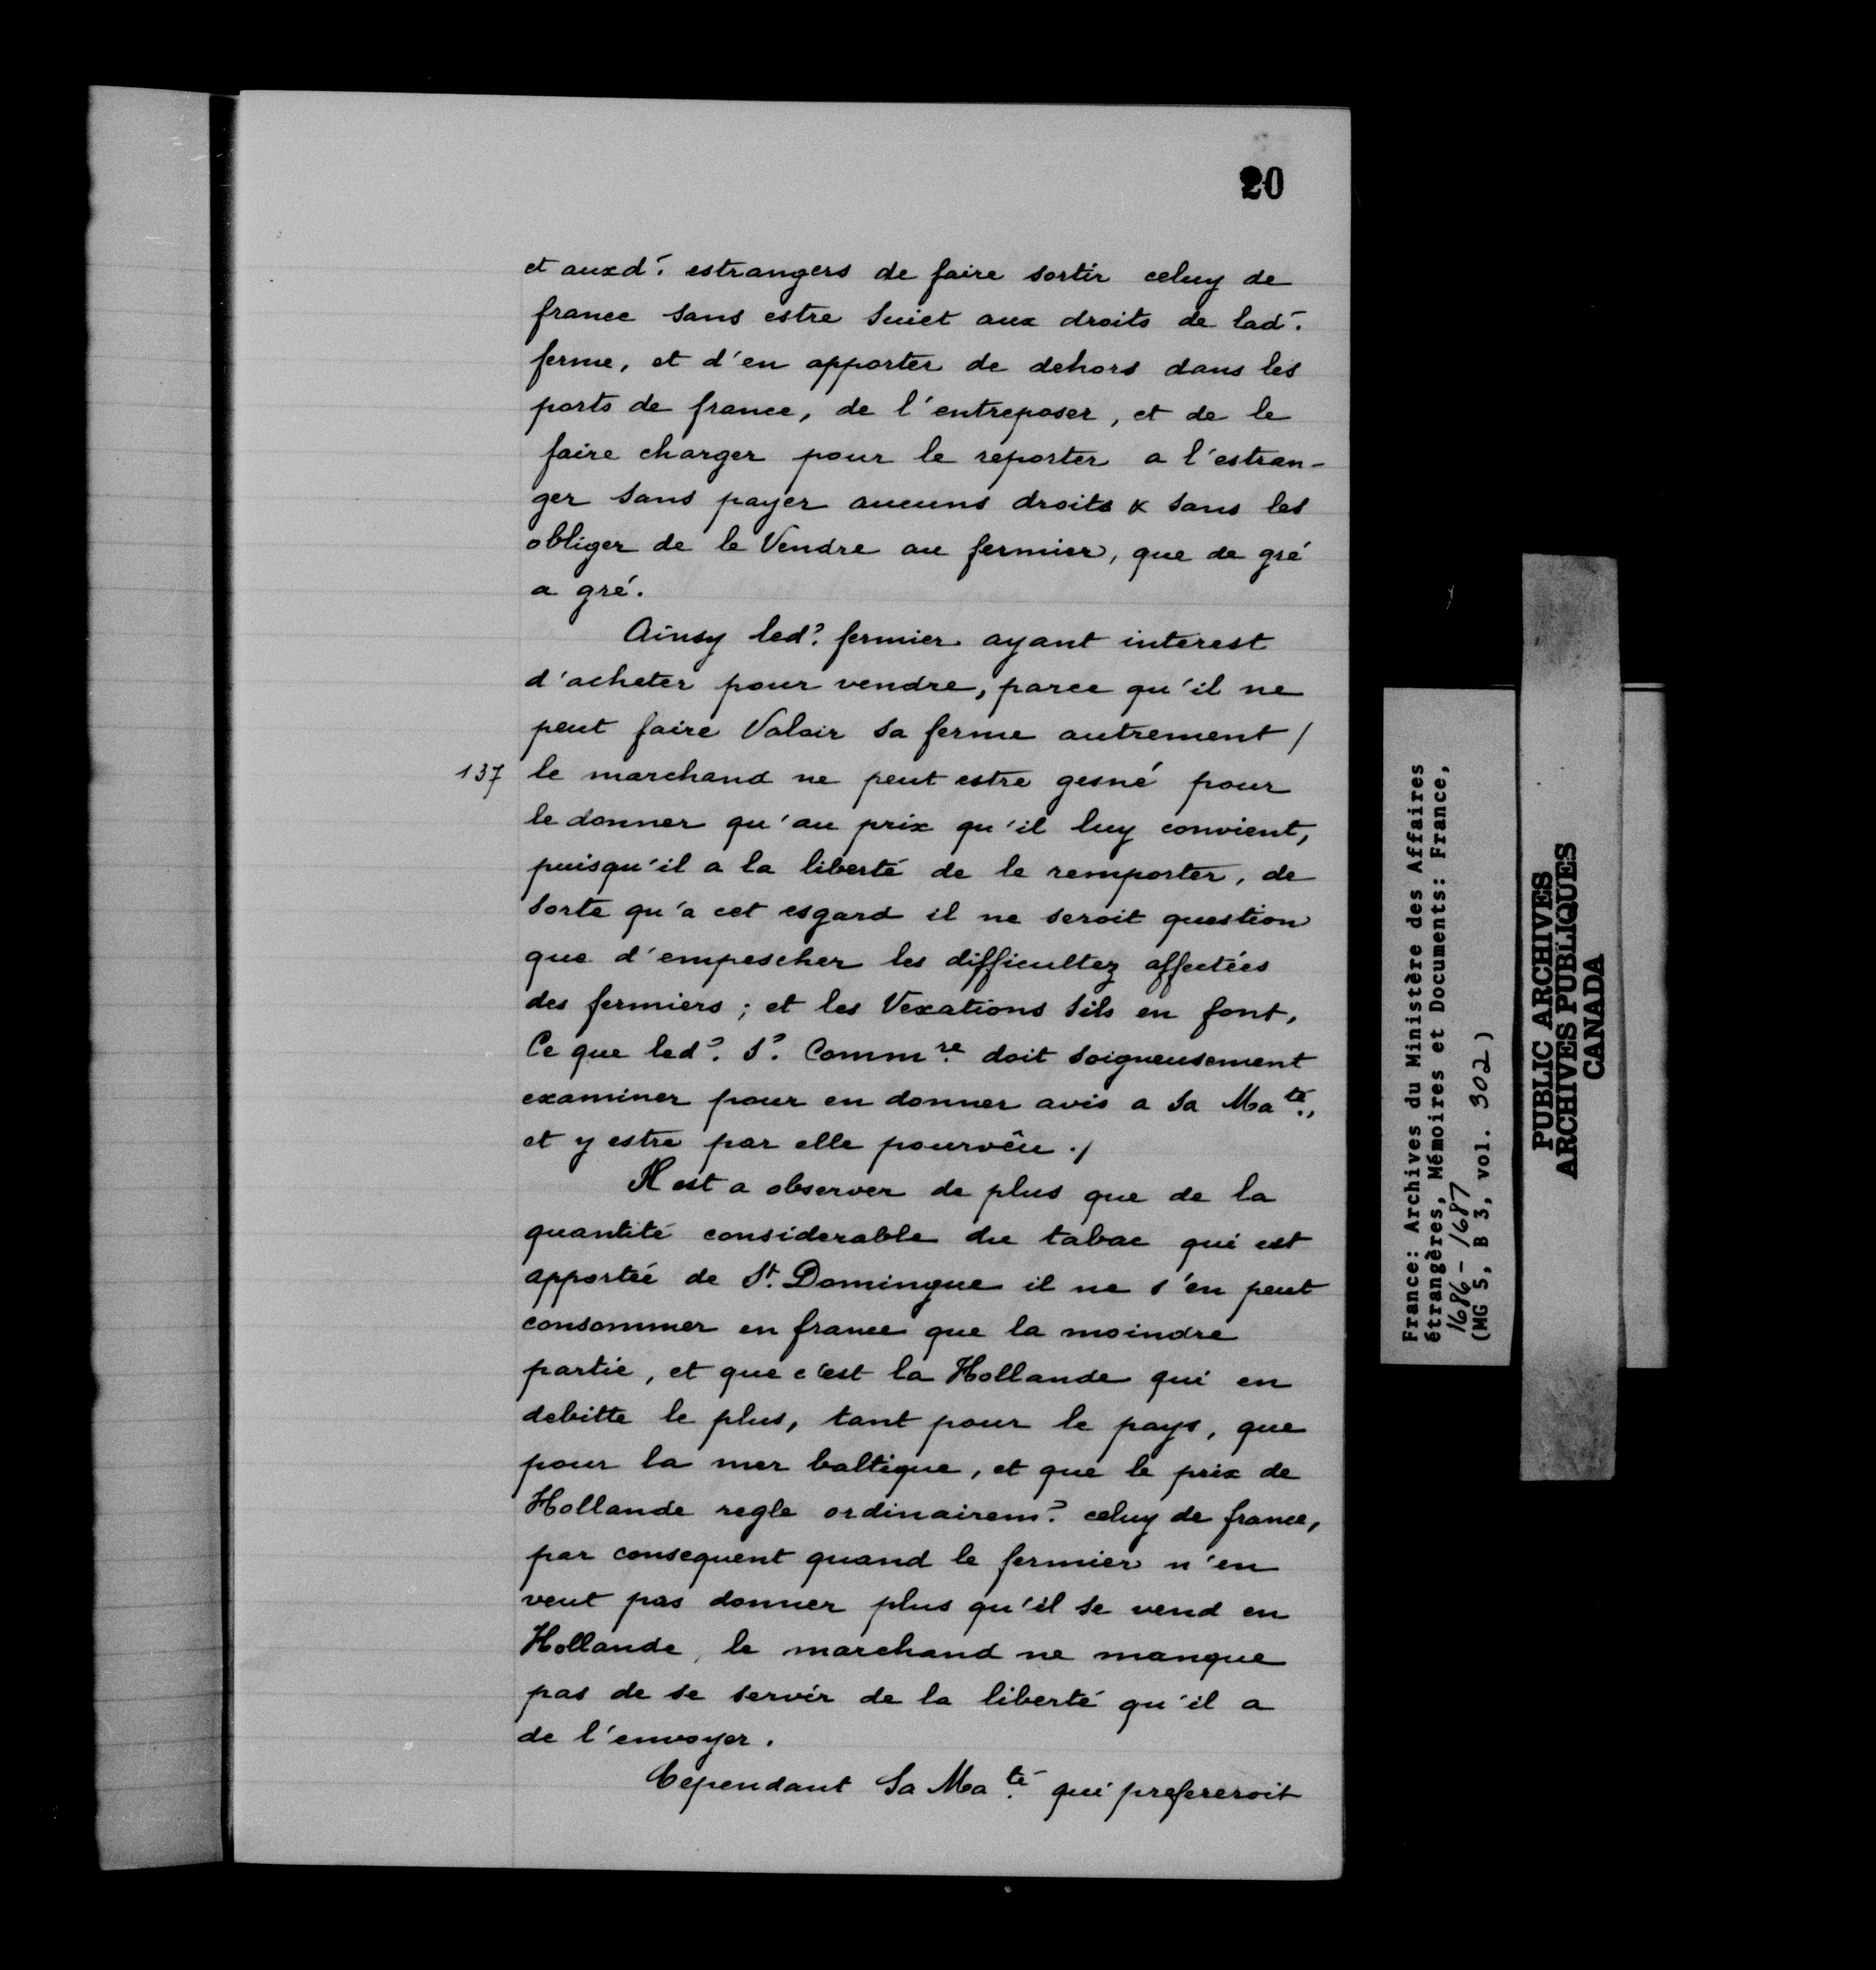 20
et auxd. estrangers de faire sortir celuy de
france sans estre suiet aux droits de lad.
ferme, et d'en apporter de dehors dans les
ports de france, de l'entreposer, et de le
faire charger pour le reporter a l'estran-
ger sans payer aucuns droits & sans les
obliger de le Vendre au fermier, que de gré
a gré.
Ainsy led. fermier ayant interest
d'acheter pour vendre, parce qu'il ne
peut faire Valoir sa ferme autrement /
137 le marchand ne peut estre gesné pour
le donner qu'au prix qu'il luy convient,
puisqu'il a la liberté de le remporter, de
sorte qu'a cet esgard il ne seroit question
que d'empescher les difficultez affectées
des fermiers ; et les Vexations sils en font,
Ce que led. S. Commre doit soigneusement
examiner pour en donner avis a sa Maté.,
et y estre par elle pourvêu ./
Il est a observer de plus que de la
quantité considerable du tabac qui est
apportée de St. Domingue il ne s'en peut
consommer en france que la moindre
partie, et que c'est la Hollande qui en
debitte le plus, tant pour le pays, que
pour la mer baltique, et que le prix de
Hollande regle ordinairem. celuy de france,
par consequent quand le fermier n'en
veut pas donner plus qu'il se vend en
Hollande, le marchand ne manque
pas de se servir de la liberté qu'il a
de l'envoyer.
Cependant Sa Maté. qui prefereroit
France: Archives du Ministère des Affaires
étrangères, Mémoires et Documents: France,
1686 - 1687
(MG 5, B 3, vol. 302)
PUBLIC ARCHIVES
ARCHIVES PUBLIQUES
CANADA